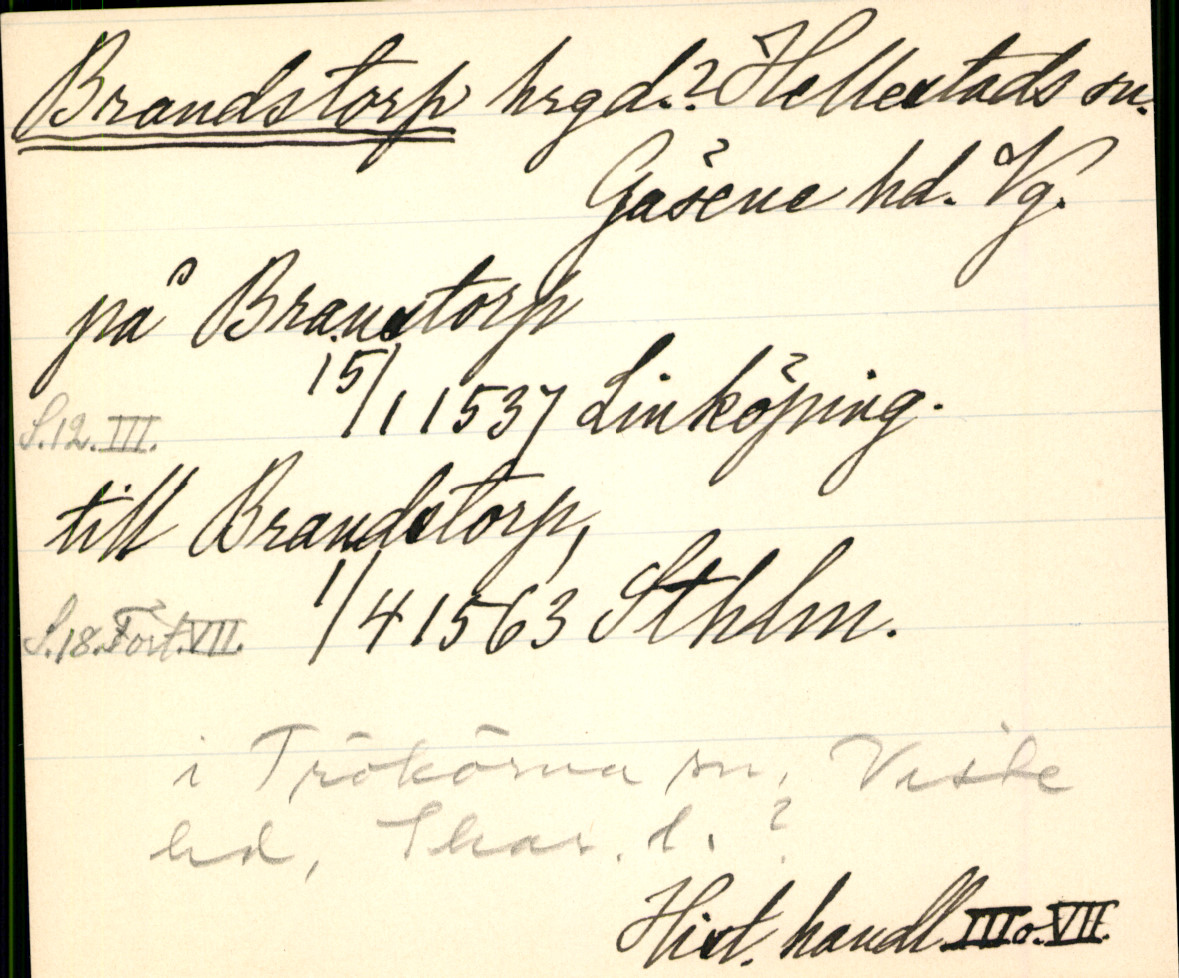 Brandstorp hrgd.? Hellestads sn.
Gäsene hd. Vg.
på Branstorp
15/1 1537 Linköping.
S.12. III.
till Brandstorp,
1/4 1563 Sthlm.
S.18. Fört. VII.
i Trökörna sn, Viste
hd, Skar. l. ?
Hist. handl III o. VII.